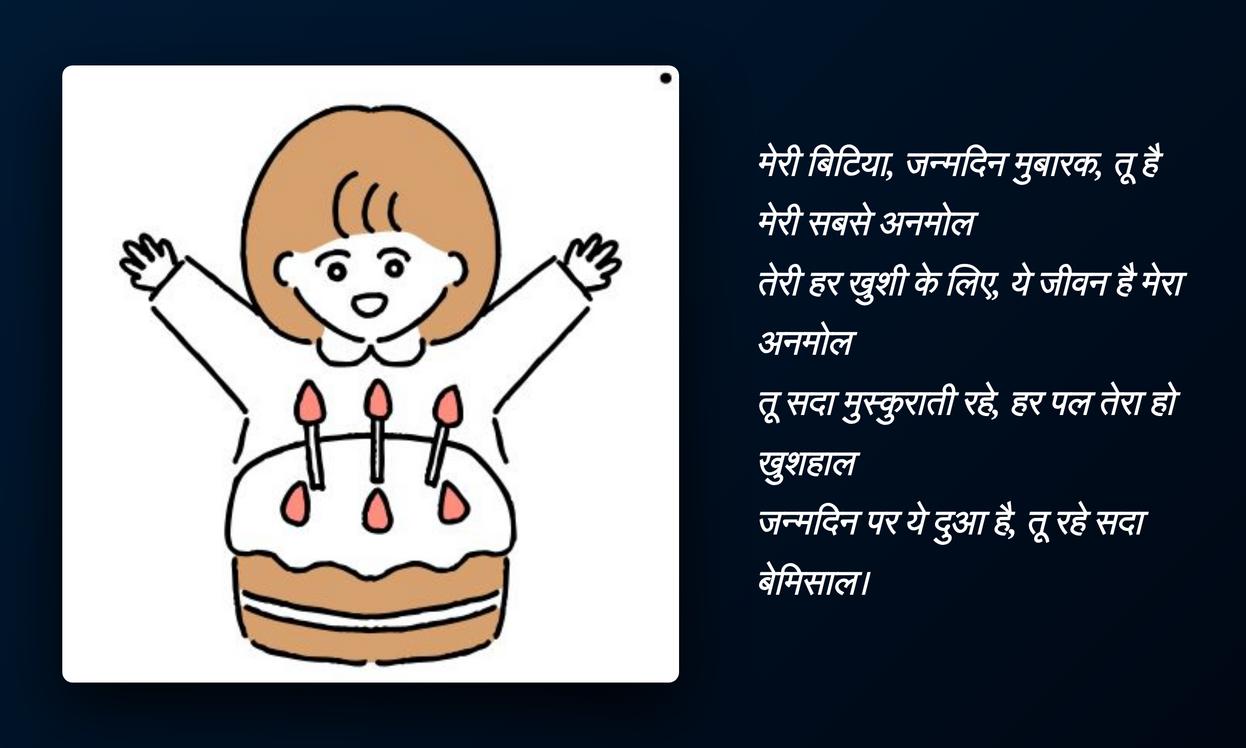 मेरी बिटिया, जन्मदिन मुबारक, तू है
मेरी सबसे अनमोल
तेरी हर खुशी के लिए, ये जीवन है मेरा
अनमोल
तू सदा मुस्कुराती रहे, हर पल तेरा हो
खुशहाल
जन्मदिन पर ये दुआ है, तू रहे सदा
बेमिसाल।